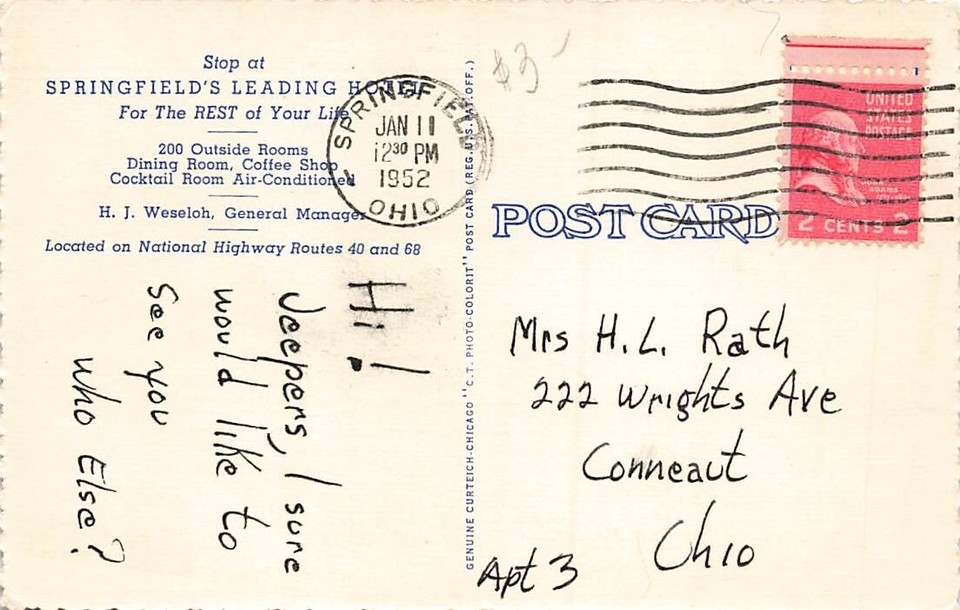 Stop at
SPRINGFIELD'S LEADING HOTEL
For The REST of Your Life
200 Outside Rooms
Dining Room, Coffee Shop
Cocktail Room Air-Conditioned
H. J. Weseloh, General Manager
Located on National Highway Routes 40 and 68
Hi!
Jeepers, I sure
would like to
See you
Who Else?
GENUINE CURTEICH-CHICAGO "C.T. PHOTO-COLORIT" POST CARD (REG. U.S. PAT. OFF.)
$3-
SPRINGFIELD
JAN 11
12 30 PM
1952
OHIO
POST CARD
UNITED
STATES
POSTAGE
JOHN
ADAMS
2 CENTS 2
Mrs H.L. Rath
222 Wrights Ave
Conneaut
Ohio
Apt 3